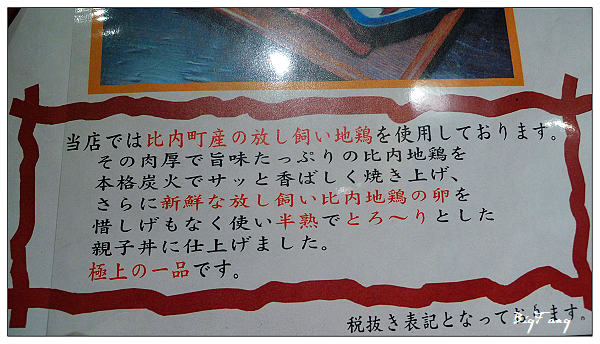 当店では比内町産の放し飼い地鶏を使用しております。
その肉厚で旨味たっぷりの比内地鶏を
本格炭火でサッと香ばしく焼き上げ、
さらに新鮮な放し飼い比内地鶏の卵を
惜しげもなく使い半熟でとろ～りとした
親子丼に仕上げました。
極上の一品です。
税抜き表記となっております。